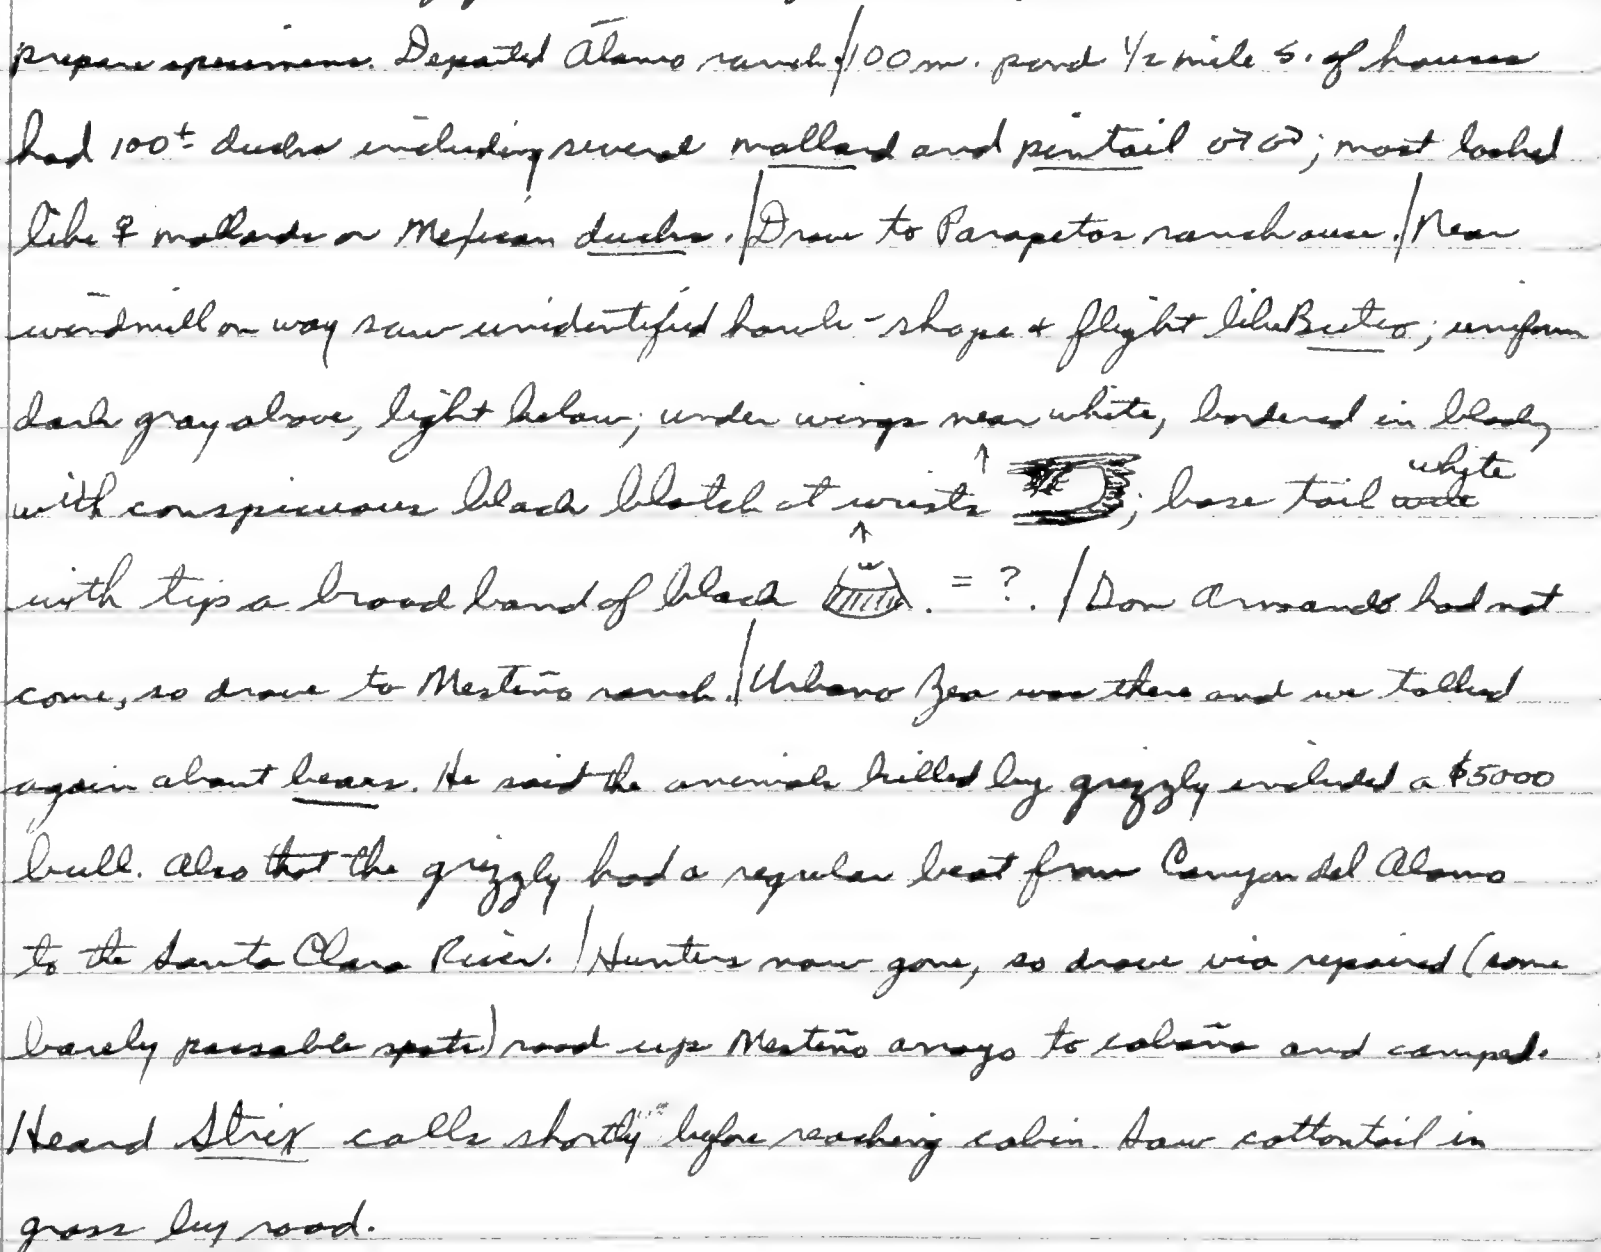 prepare specimens. Departed Álamo ranch./100 m. pond 1/2 mile S. of houses
had 100± ducks including several mallard and pintail ♂♂; most looked
like ♀ mallards or Mexican ducks./Drove to Parapetos ranch house./Near
windmill on way saw unidentified hawk - shape + flight like Buteo; uniform
dark gray above, light below; under wings near white, bordered in black,
with conspicuous black blotch at wrists ↑ ; base tail white
with tips a broad band of black ↑ . = ?. /Don Armando had not
come, so drove to Mesteño ranch./Urbano Zea was there and we talked
again about bears. He said the animals killed by grizzly included a $5000
bull. Also that the grizzly had a regular beat from Canyon del Alamo
to the Santa Clara River. /Hunters now gone, so drove via repaired (some
barely passable spots) road up Mesteño arroyo to cabaña and camped.
Heard Strix calls shortly before reaching cabin. Saw cottontail in
grass by road.